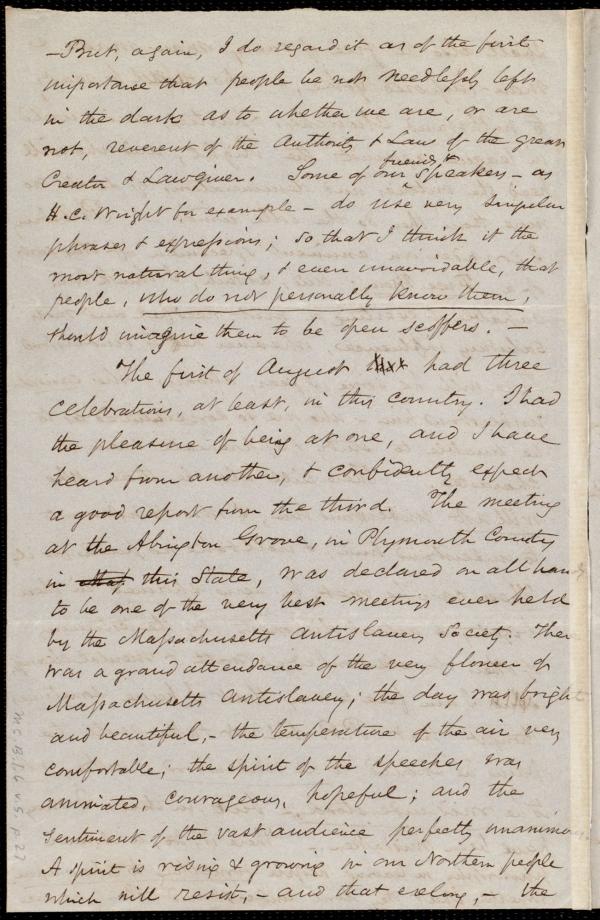 —But, again, I do regard it as of the first
importance that people be not needlessly left
in the dark as to whether we are, or are
not, reverent of the Authority & Law of the great
Creator & Lawgiver. Some of our friends & speakers – as
H. C. Wright for example – do use very singular
phrases & expressions; so that I think it the
most natural thing, & even unavoidable, that
people, who do not personally know them,
should imagine them to be open scoffers. —
The first of August had three
celebrations, at least, in this country. I had
the pleasure of being at one, and I have
heard from another, & confidently expect
a good report from the third. The meeting
at the Abington Grove, in Plymouth County
in this State, was declared on all hands
to be one of the very best meetings ever held
by the Massachusetts Antislavery Society. There
was a grand attendance of the very flower of
Massachusetts Antislavery; the day was bright
and beautiful, – the temperature of the air very
comfortable; the spirit of the speeches was
animated, courageous, hopeful; and the
sentiment of the vast audience perfectly unanimous
A spirit is rising & growing in our Northern people
which will resist, – and that, – the
Ms. B.1.6 v.5, p.27